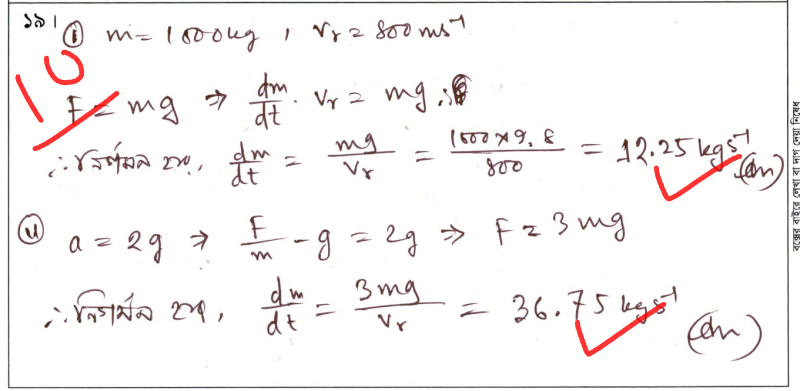 ১৯। (i) m = 1000kg , Vr = 800 ms⁻¹
10
F = mg ⇒ dm/dt . Vr = mg
∴ নির্গমন হার, dm/dt = mg/Vr = 1000×9.8/800 = 12.25 kgs⁻¹ (Am)
(ii) a = 2g ⇒ F/m - g = 2g ⇒ F = 3mg
∴ নির্গমন হার, dm/dt = 3mg/Vr = 36.75 kgs⁻¹ (Am)
বক্সের বাইরে লেখা বা দাগ দেয়া নিষেধ